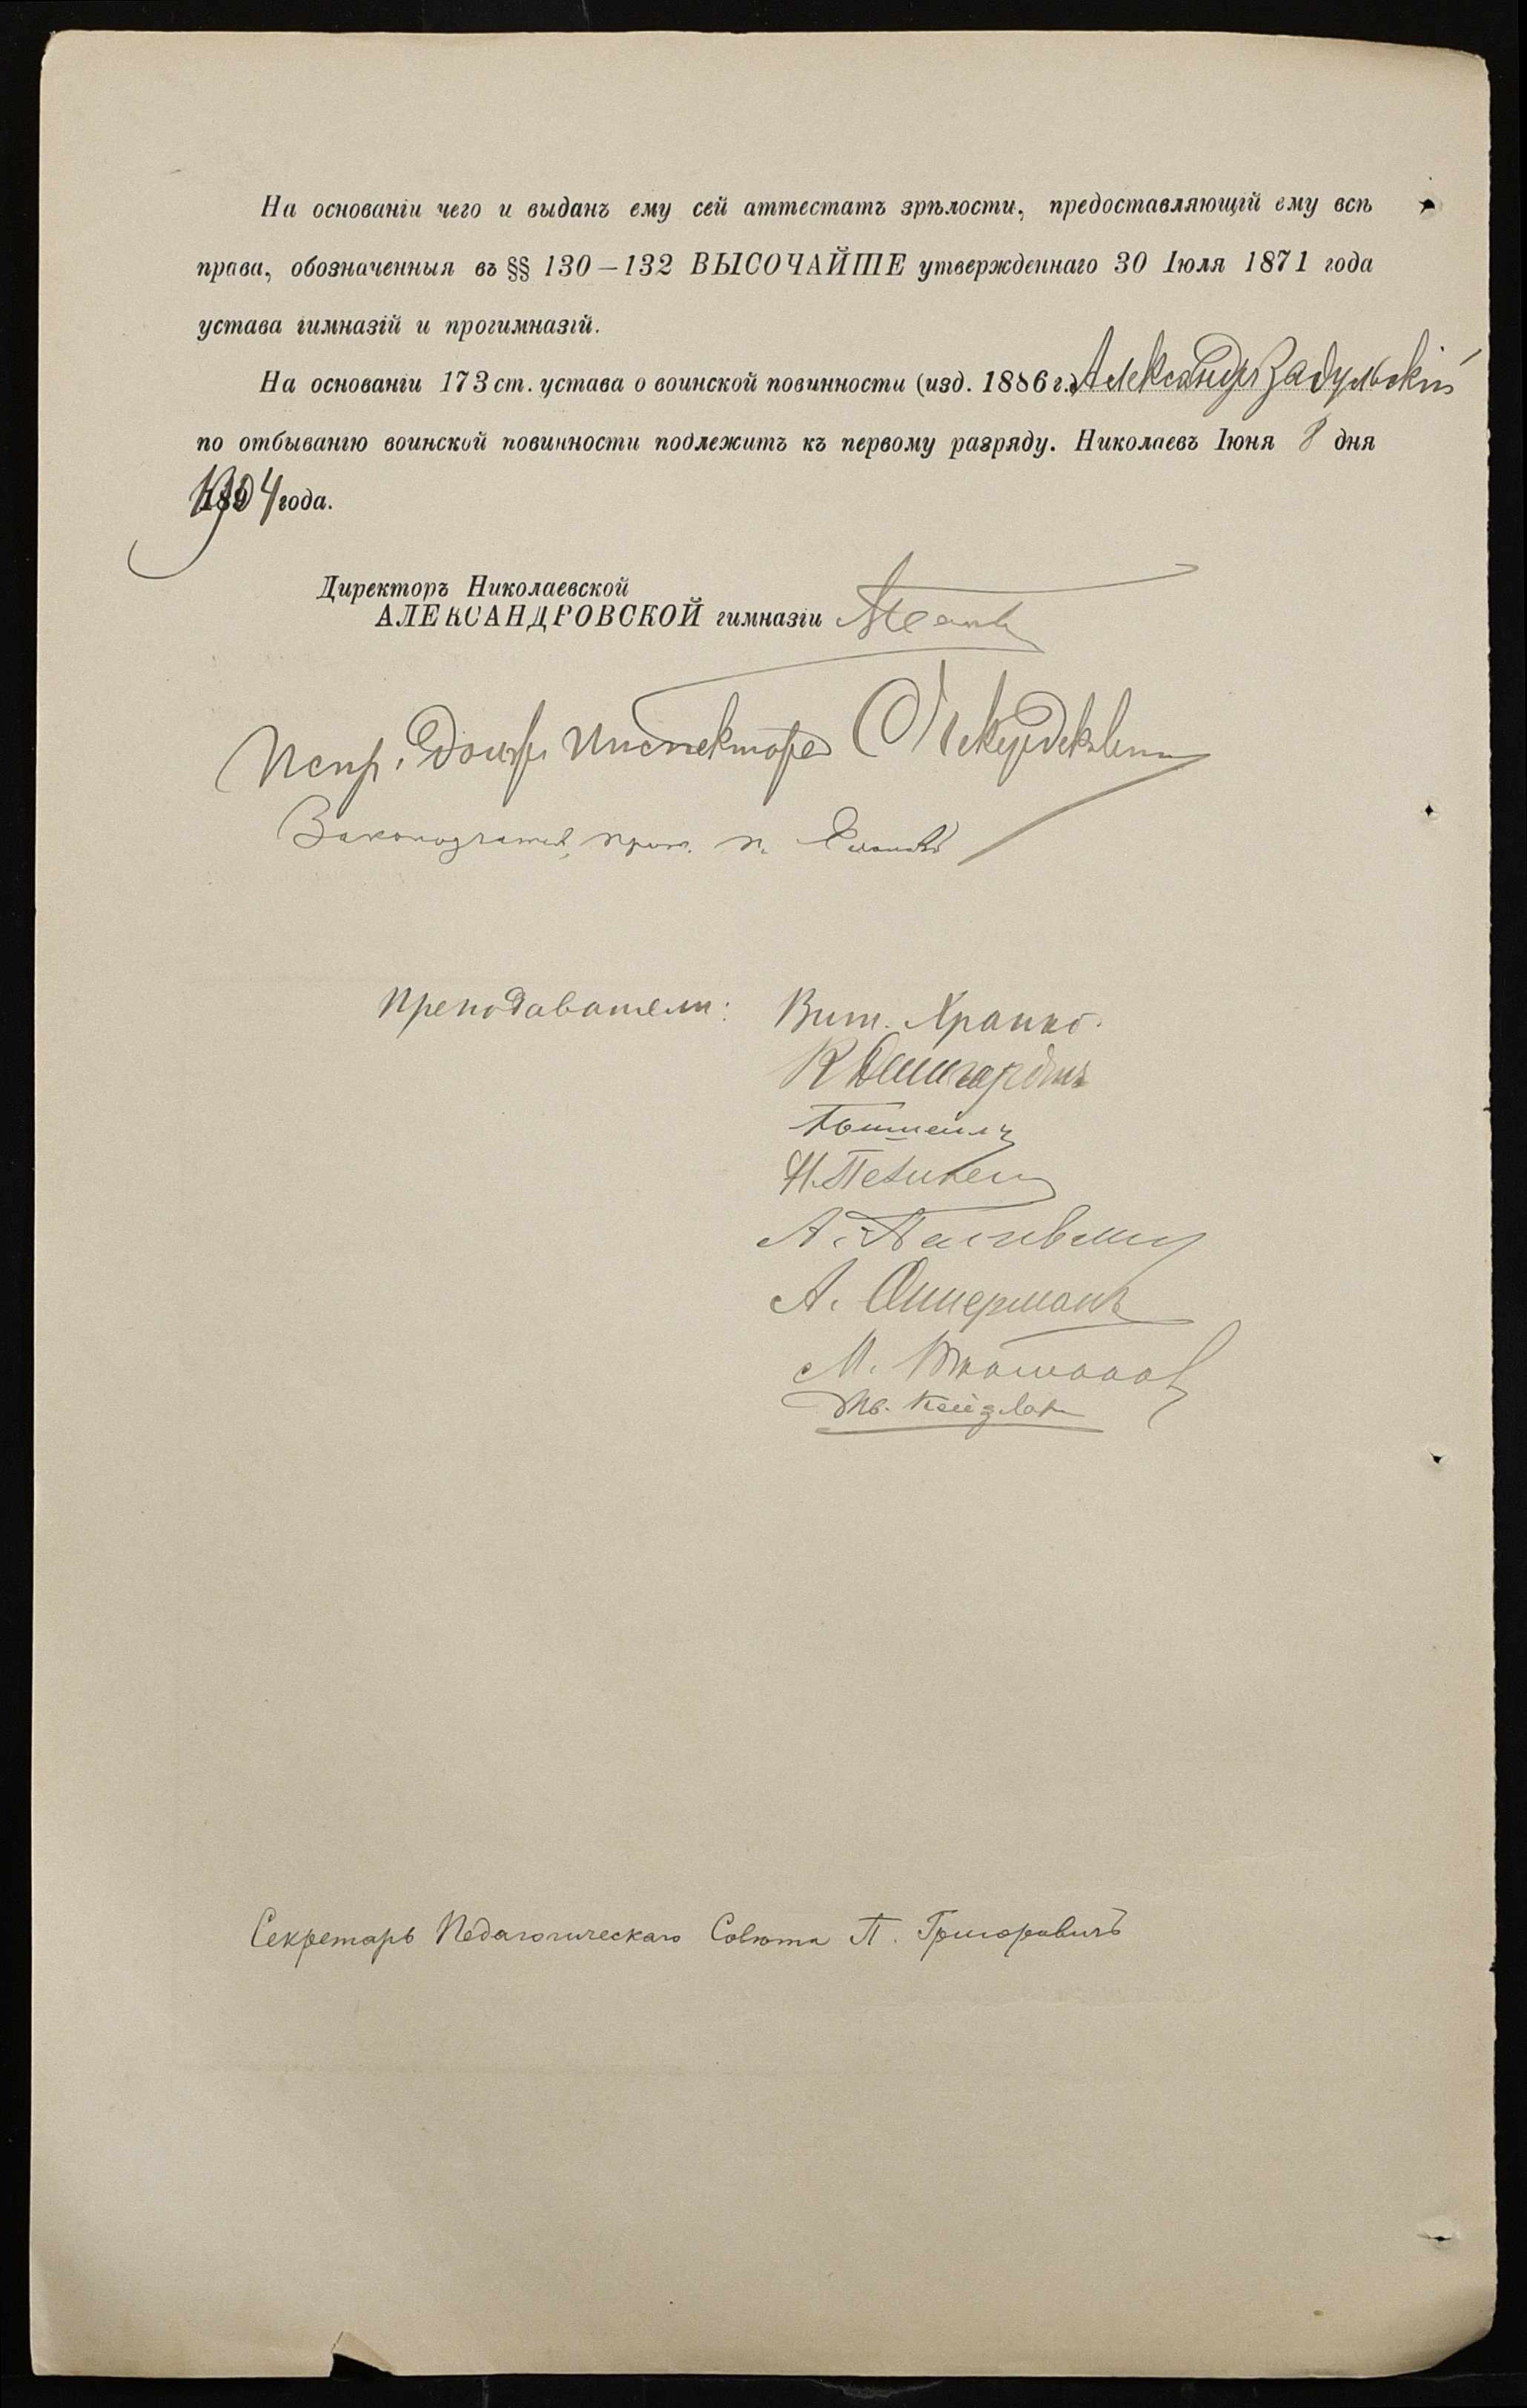 На основаніи чего и выданъ ему сей аттестатъ зрѣлости, предоставляющій ему всѣ
права, обозначенныя въ §§ 130—132 ВЫСОЧАЙШЕ утвержденнаго 30 Іюля 1871 года
устава гимназій и прогимназій.
На основаніи 173 ст. устава о воинской повинности (изд. 1886 г.) Александръ Задульскій
по отбыванію воинской повинности подлежитъ къ первому разряду. Николаевъ Іюня 8 дня
1904 года.
Директоръ Николаевской
АЛЕКСАНДРОВСКОЙ гимназіи
Испр. долж. Инспектора
Законоучитель, прот. п.
Преподаватели:
Вит.
К
Н.
А.
А. Аккерманъ
М.
Секретарь Педагогическаго Совѣта П. Григоровичъ